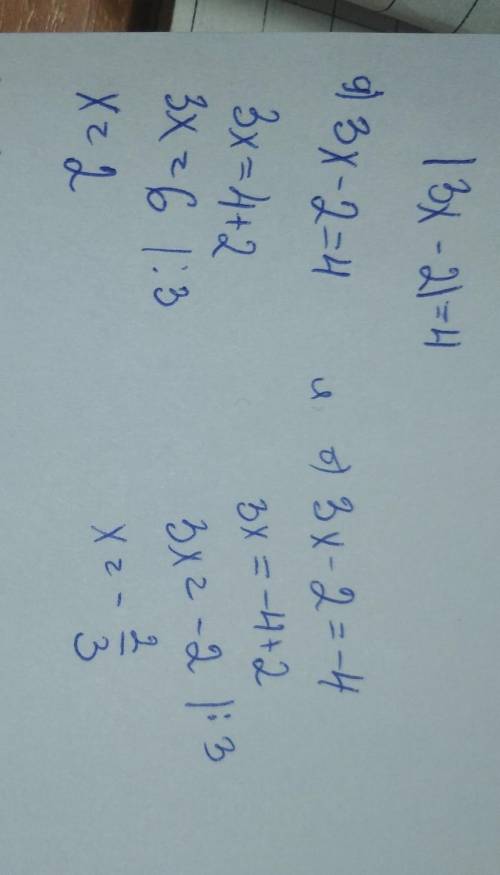 |3x - 2| = 4
а) 3x - 2 = 4 и б) 3x - 2 = -4
3x = 4 + 2 3x = -4 + 2
3x = 6 |:3 3x = -2 |:3
x = 2 x = -2/3